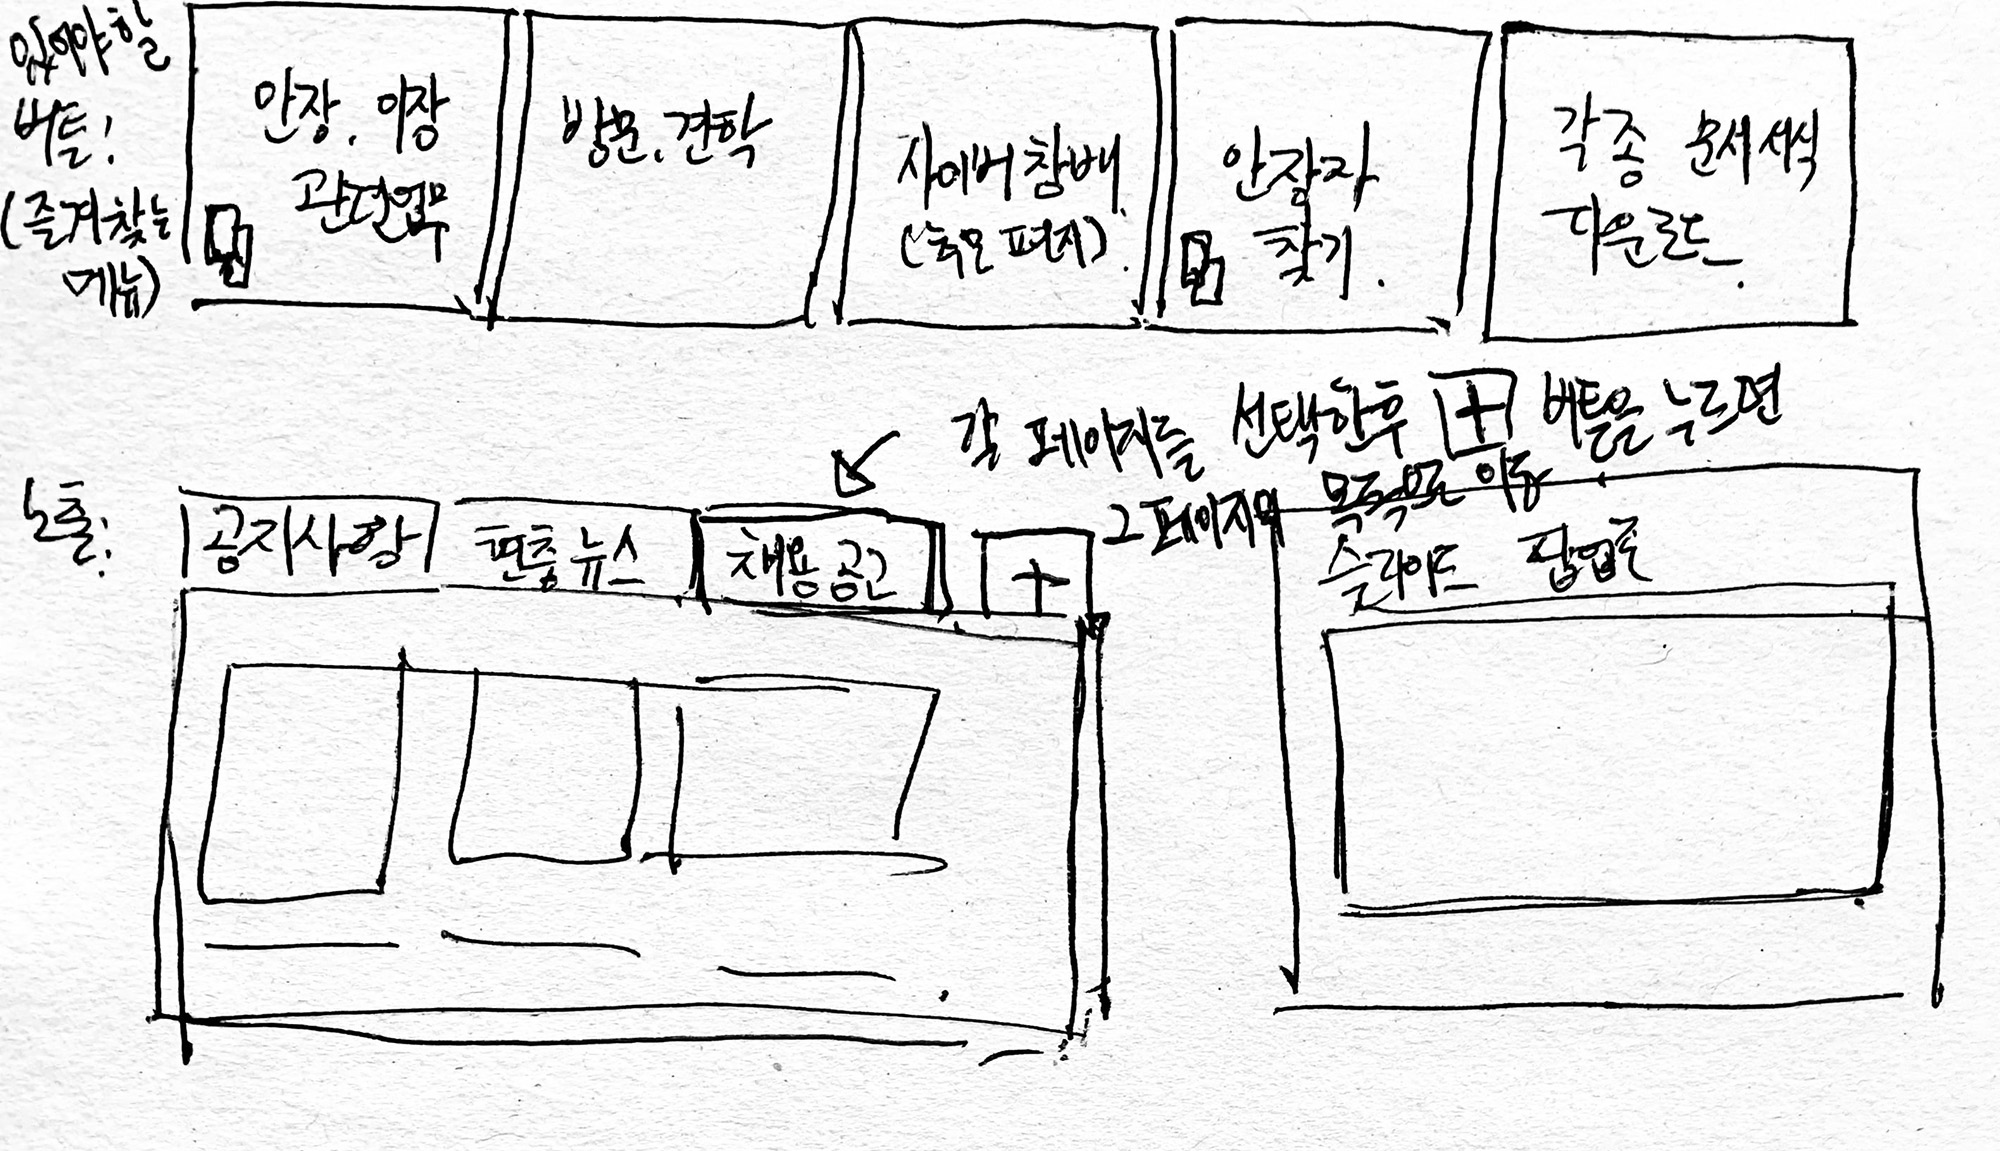 있어야 할
버튼!
(즐겨찾는
메뉴)
안장. 이장
관련업무
방문. 견학
사이버 참배
(추모 편지).
안장자
찾기.
각종 문서서식
다운로드.
각 페이지들 선택한후 + 버튼을 누르면
그 페이지의 목록으로 이동
노출:
공지사항
현충 뉴스
채용 공고
+
슬라이드 팝업존